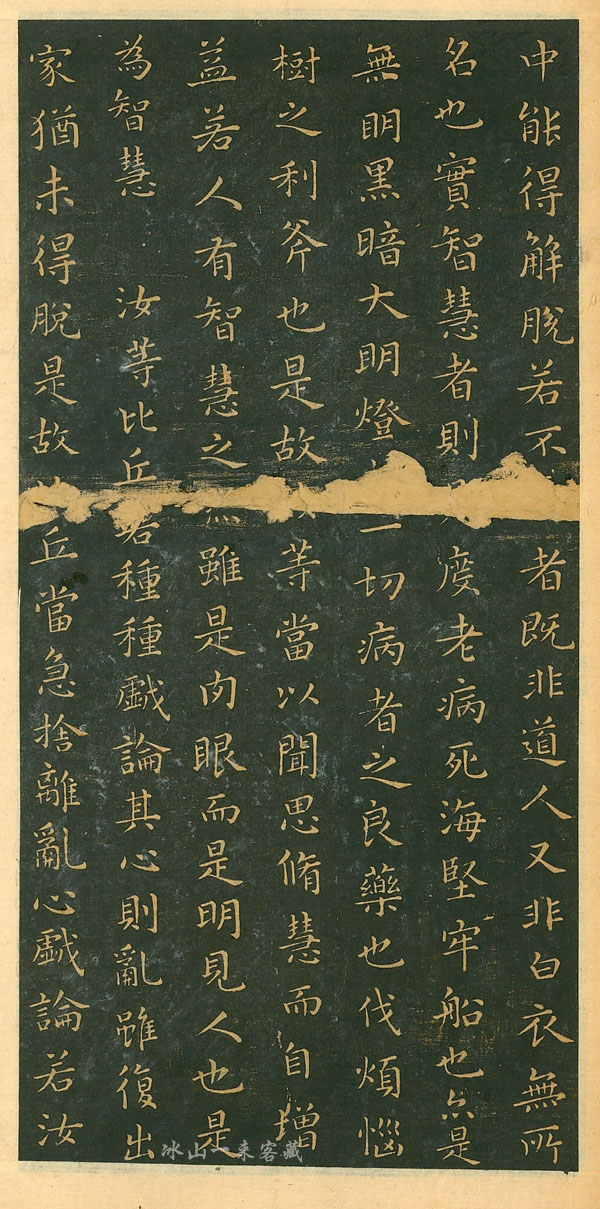 中能得解脫若不者既非道人又非白衣無所
名也實智慧者則度老病死海堅牢船也亦是
無明黑暗大明燈一切病者之良藥也伐煩惱
樹之利斧也是故等當以聞思脩慧而自增
益若人有智慧之雖是肉眼而是明見人也是
為智慧 汝等比丘若種種戲論其心則亂雖復出
家猶未得脫是故丘當急捨離亂心戲論若汝
冰山 来客藏